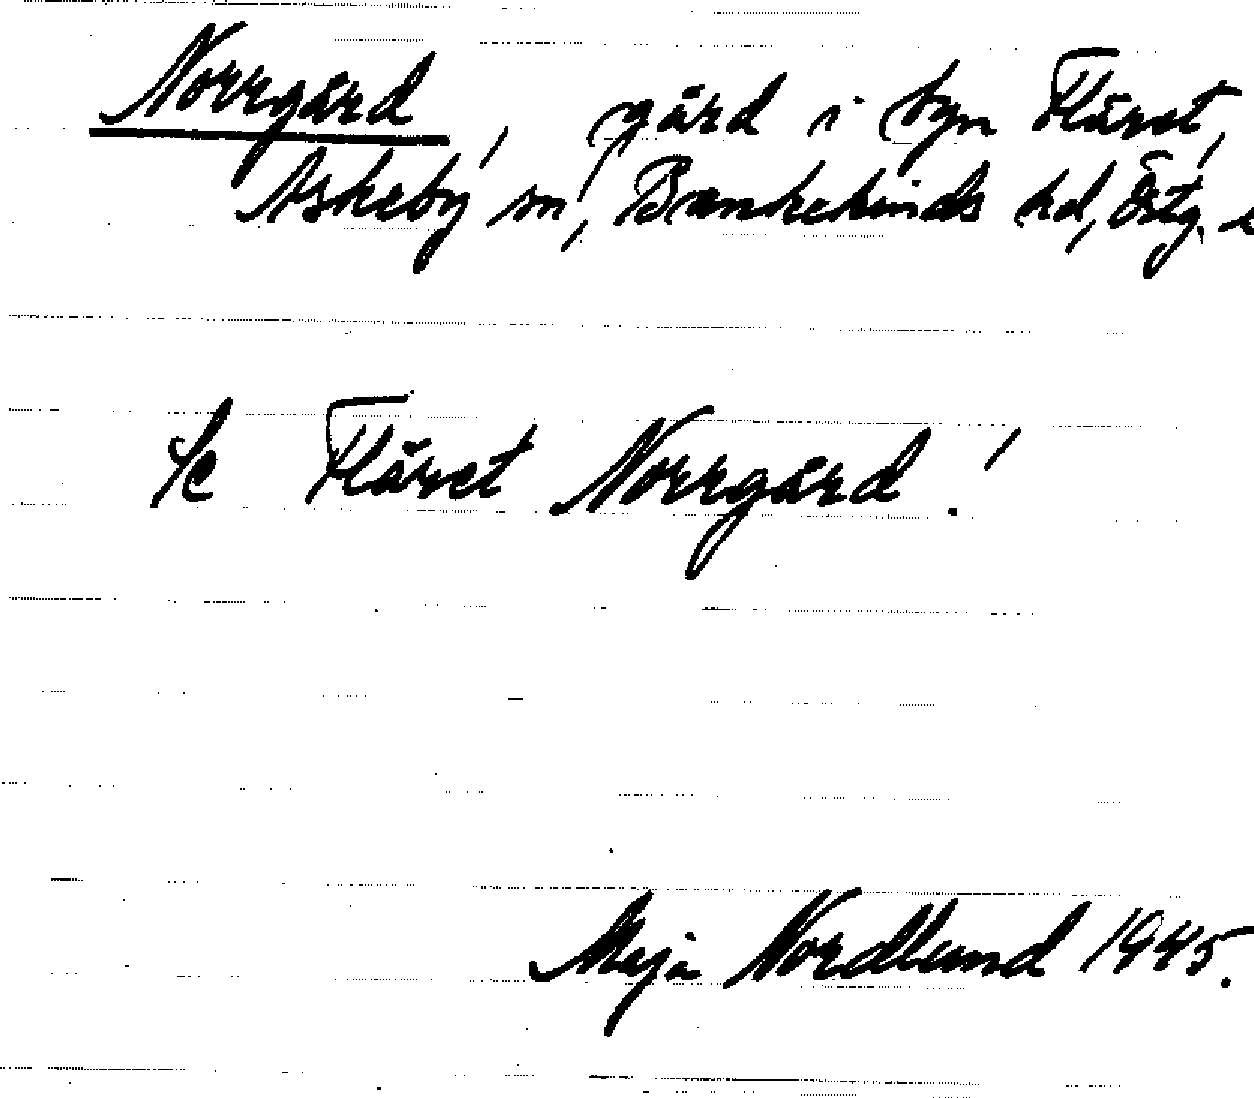 Norrgård, gård i byn Fläret,
Askeby sn, Bankekinds hd, Östg.
Se Fläret Norrgård!
Maja Nordlund 1945.